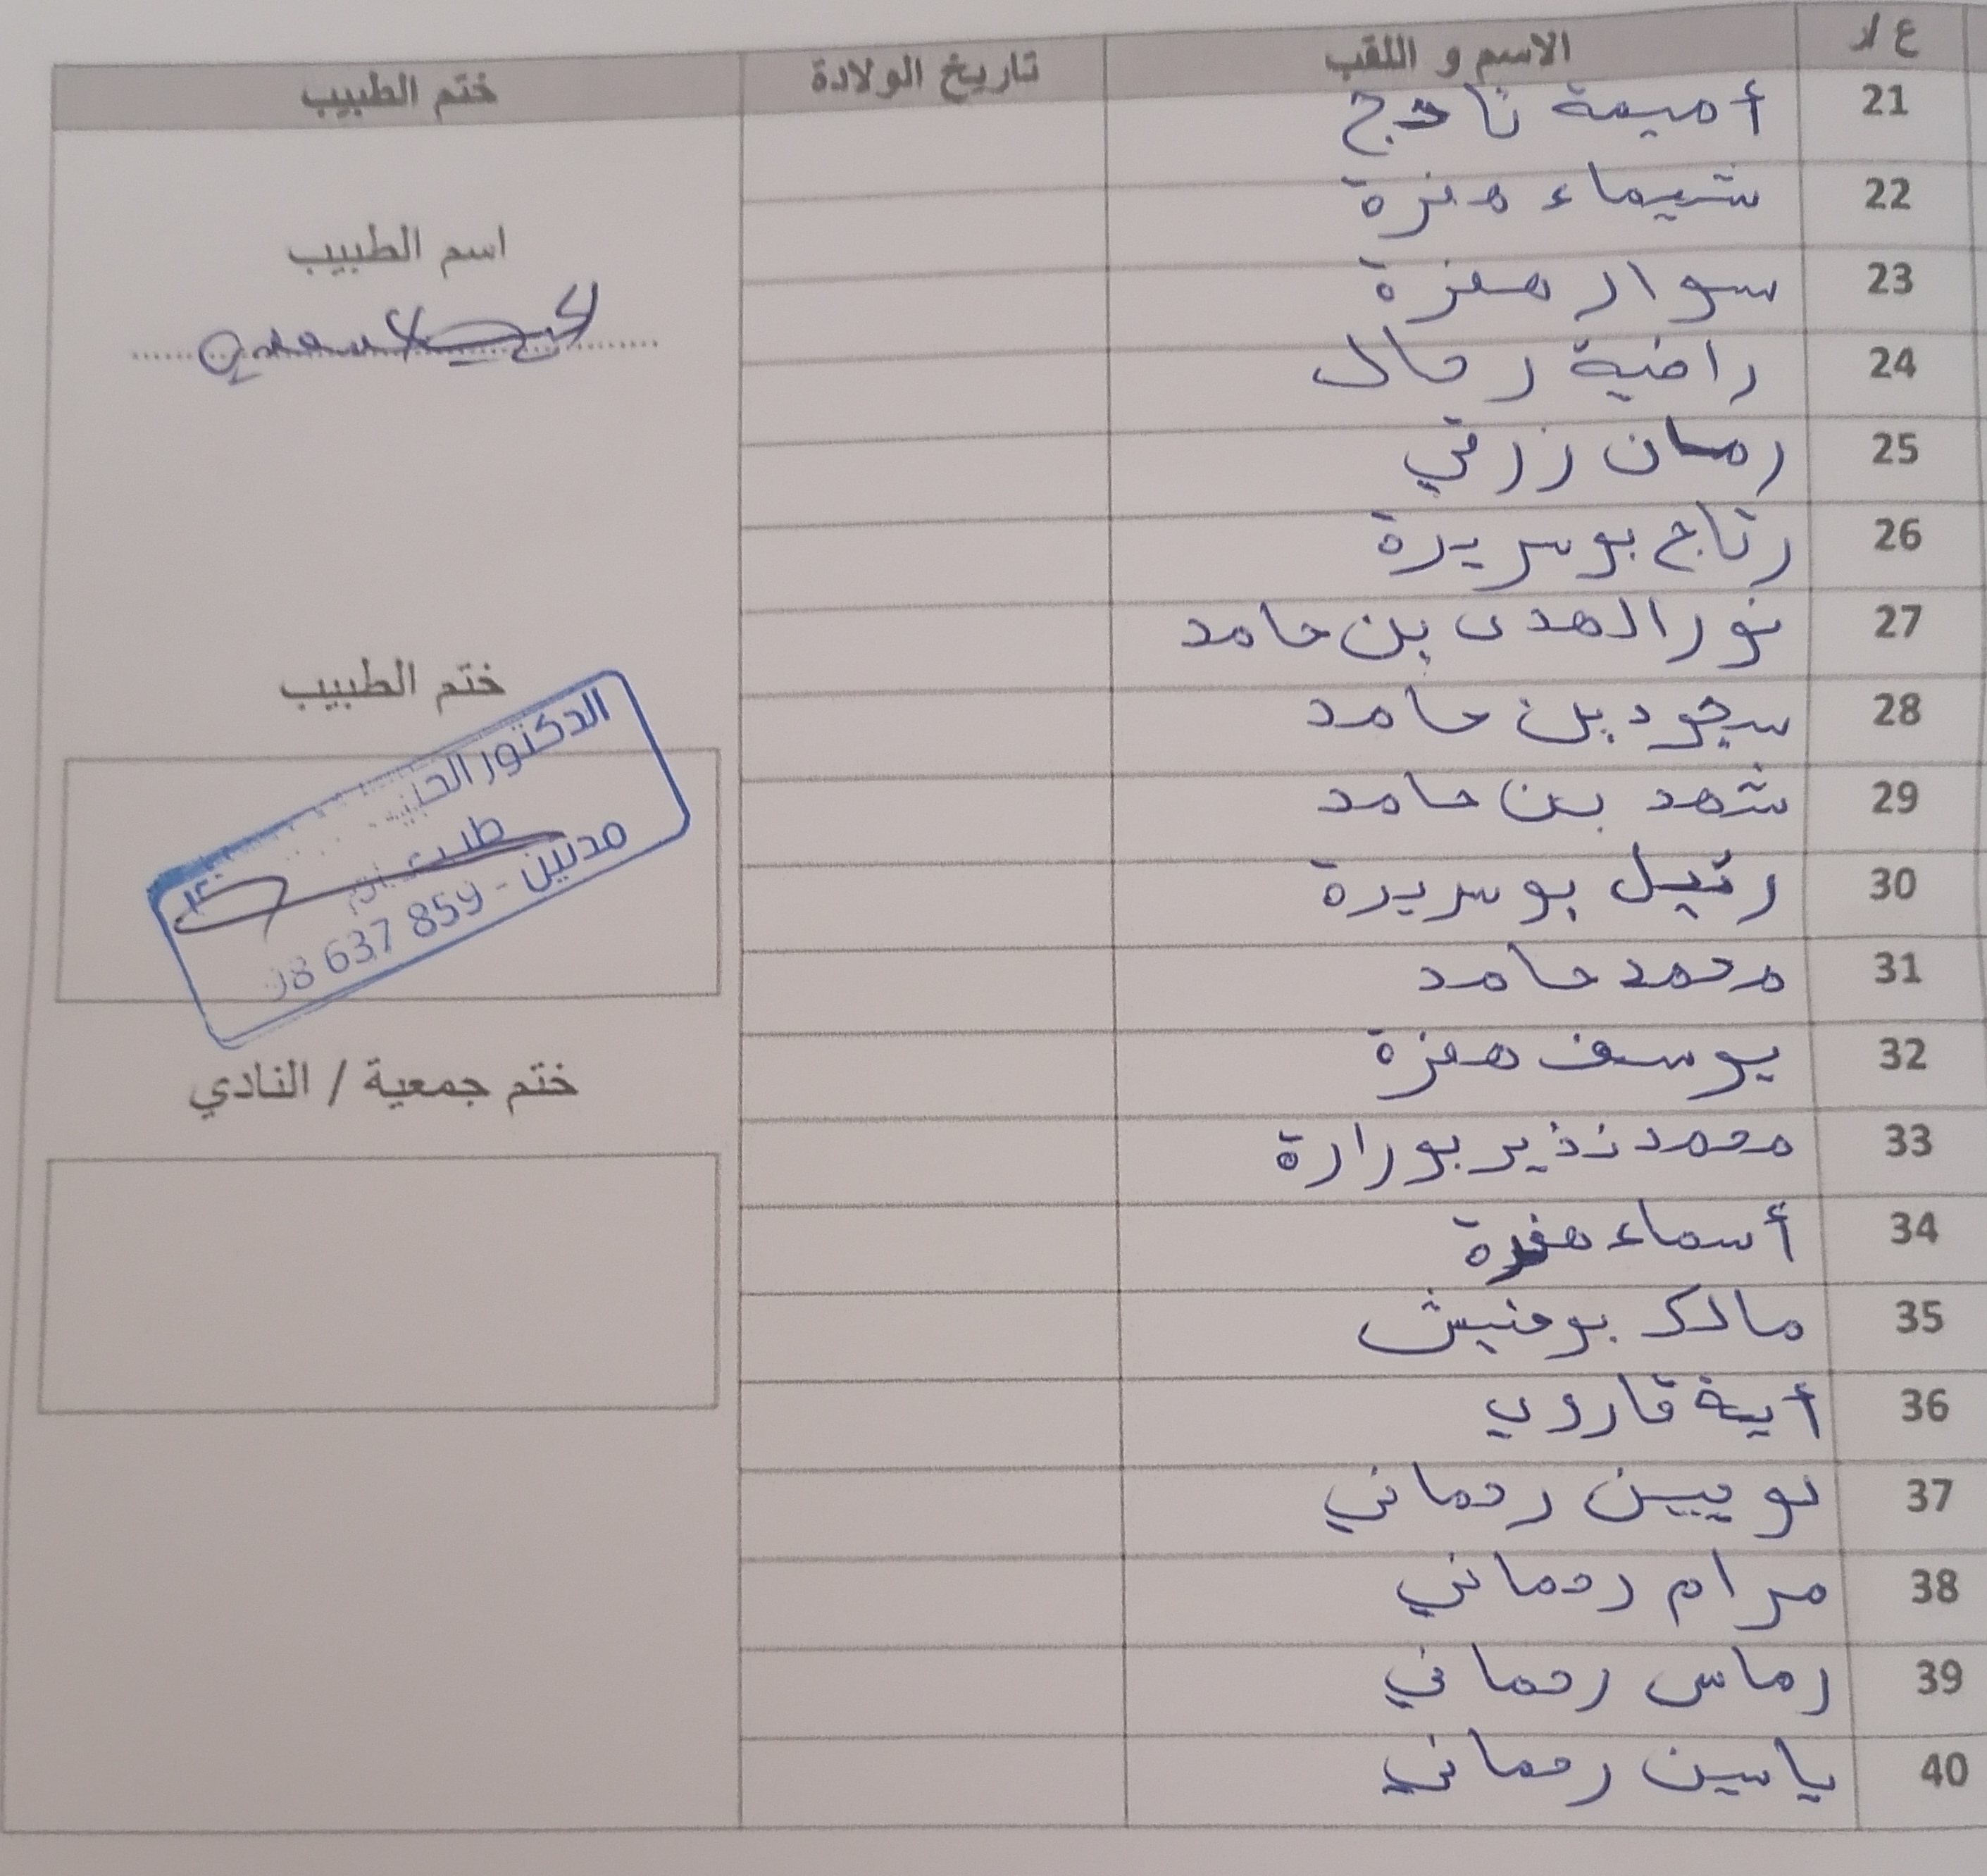 ع لا الاسم و اللقب تاريخ الولادة ختم الطبيب
21 أميمة ناجح
22 شيماء همزة
23 سوار همزة
24 راضية رحال
25 رمان زرقي
26 رتاج بوسريرة
27 نور الهدى بن حامد
28 سجود بن حامد
29 شهد بن حامد
30 رئبيل بوسريرة
31 محمد حامد
32 يوسف همزة
33 محمد نذير بورارة
34 أسماء همزة
35 مالك بوحنيش
36 أية قاروي
37 لويين رحماني
38 مرام رحماني
39 رماس رحماني
40 ياسين رحماني
اسم الطبيب
ختم الطبيب
الدكتور
طبيب عام
مدنين - 859 637 98
ختم جمعية / النادي